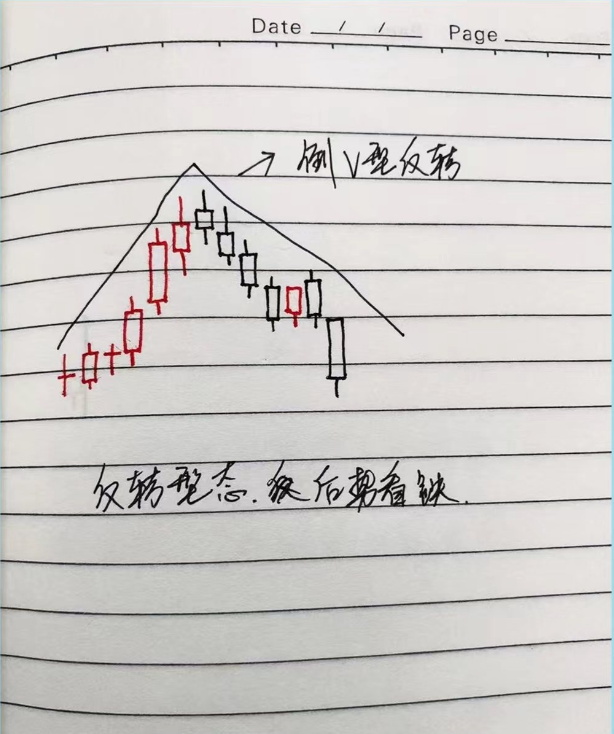 Date / / Page
倒V型反转
反转型态.后势看跌.